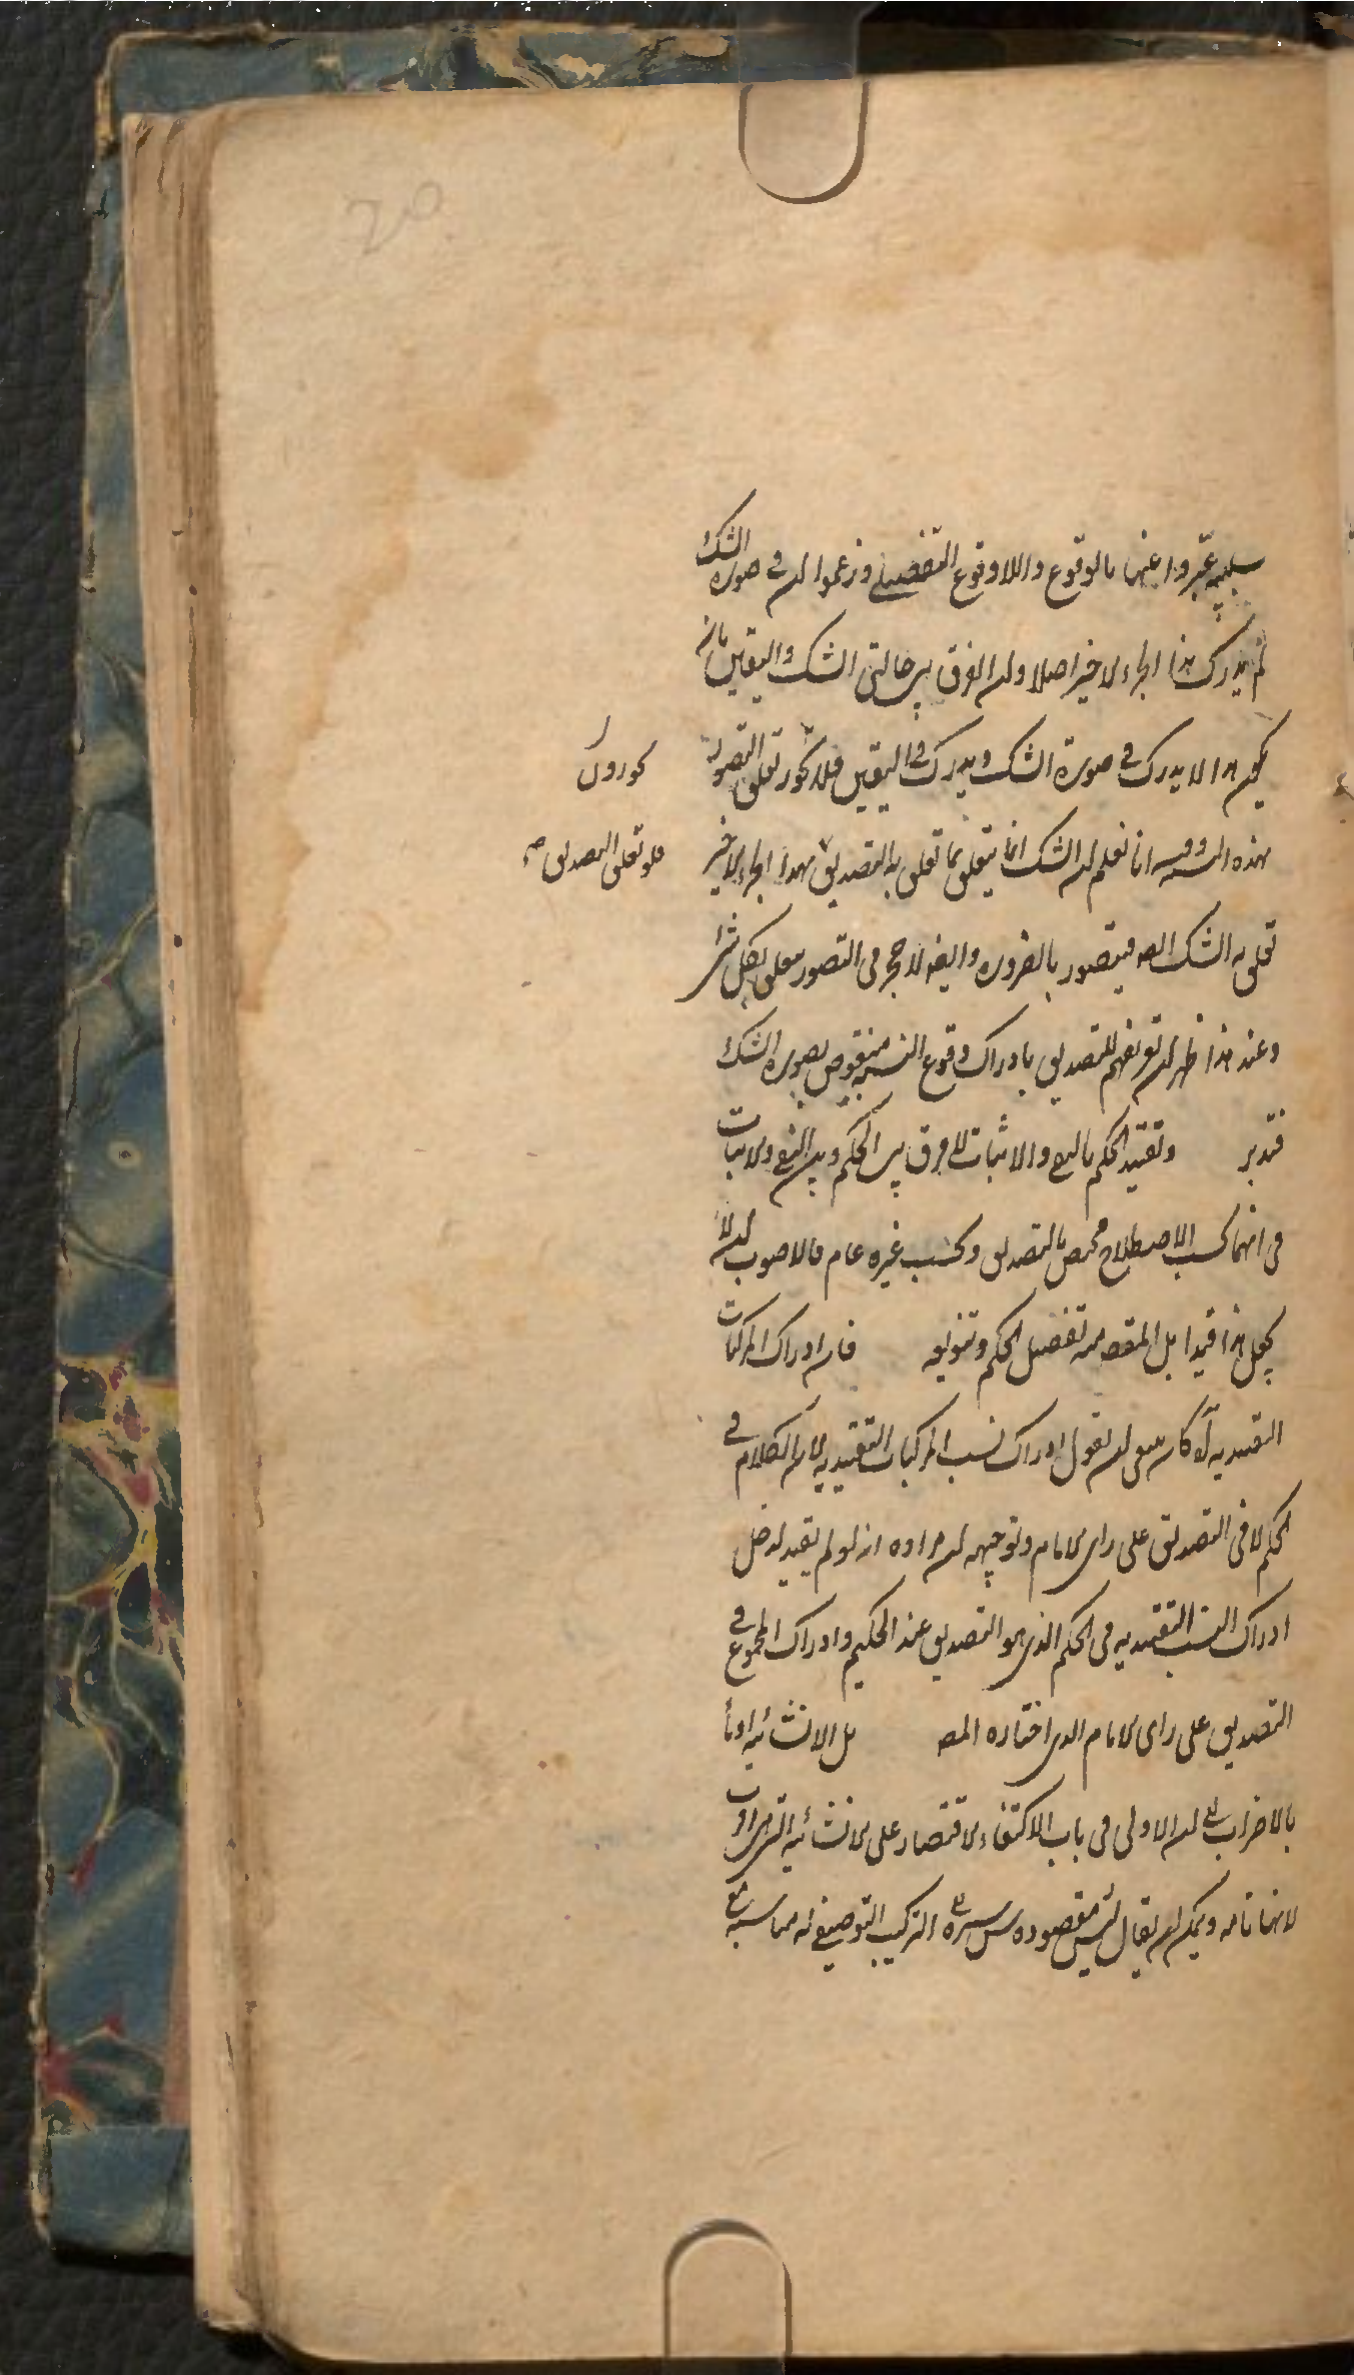 سلبية عبّروا عنها بالوقوع واللاوقوع التفصيلى وزعموا ان فى صورة الشك
لم يدرك هذا الجزء الاخير اصلا وان الفرق بين حالتى الشك واليقين بانه
هذا لا يدرك فى صورة الشك ويدرك فى اليقين تعلق التصور
بهذه انا نعلم ان الشك انما يتعلق بما تعلق به التصديق بهذا الجزء الاخير
فلو تعلق التصديق صح
تعلق به الشك فيتصور بالضرورة وايضا لا حجر فى التصور يتعلق بكل شئ
وعند هذا ظهر ان تعريفهم للتصديق بادراك وقوع النسبة منقوض بصورة الشك
فتدبر وتقييد الحكم بالنفى والاثبات لا فرق بين الحكم وبين النفى والاثبات
فى انهما بحسب الاصطلاح مختص بالتصديق وبحسب غيره عام فالاصوب ان لا
يجعل هذا قيدا بل المقصد منه تفصيل الحكم وتنويعه فان ادراك المركبات
التقييديه آه كان ينبغى ان يقول ادراك نسب المركبات التقييديه لان الكلام فى
الحكم لا فى التصديق على راى الامام وتوجيهه ان مراده انه لو لم يقيد لدخل
ادراك النسب التقييديه فى الحكم الذى هو التصديق عند الحكيم وادراك المجموع فى
التصديق على راى الامام الذى اختاره المصـ بل الانشائيه
بالاضراب الى ان الاولى فى باب الاكتفاء الاقتصار على الانشائيه
لانها تامه ويمكن ان يقال ليس مقصوده التركيب التوصيفى